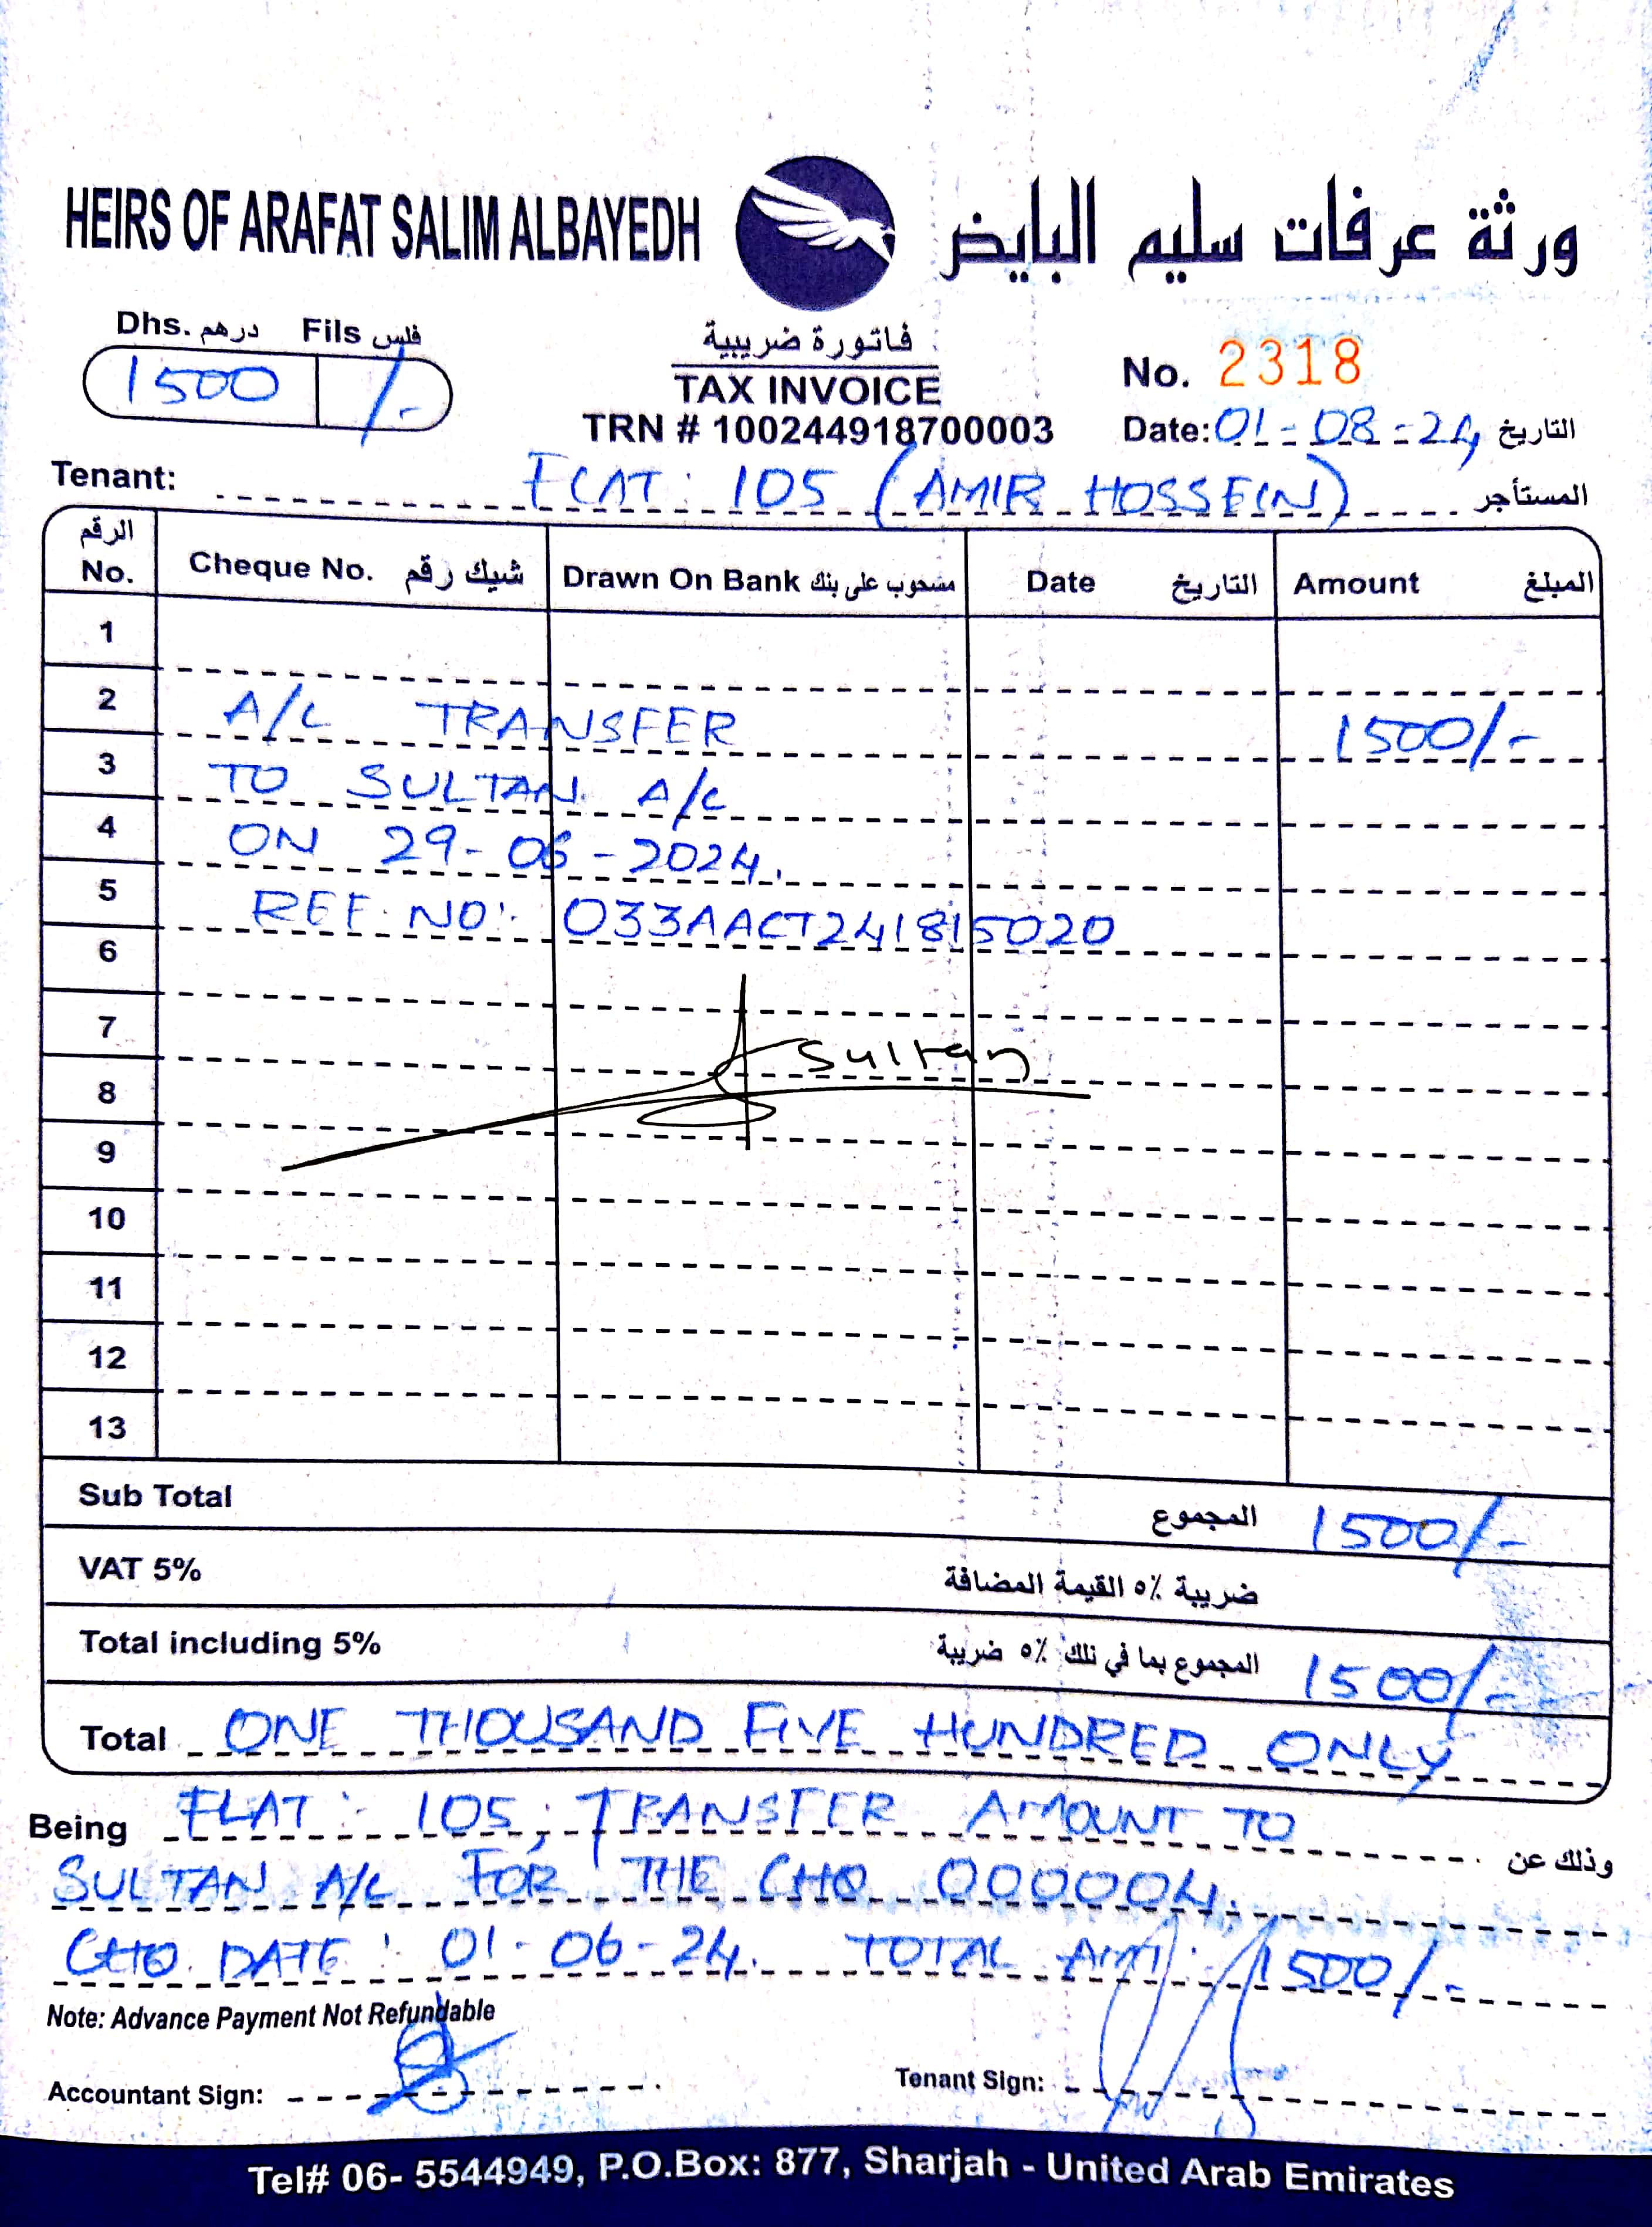 HEIRS OF ARAFAT SALIM ALBAYEDH ورثة عرفات سليم البايض
Dhs. درهم Fils فلس
1500 /-
فاتورة ضريبية
TAX INVOICE
TRN # 100244918700003
No. 2318
Date: 01-08-24 التاريخ
Tenant: FLAT: 105 (AMIR HOSSEIN) المستأجر
الرقم No. Cheque No. شيك رقم Drawn On Bank مسحوب على بنك Date التاريخ Amount المبلغ
1
2 A/C TRANSFER 1500/-
3 TO SULTAN A/C
4 ON 29-06-2024.
5 REF. NO: 033AACT241815020
6
7 Sultan
8
9
10
11
12
13
Sub Total المجموع 1500/-
VAT 5% ضريبة ٥٪ القيمة المضافة
Total including 5% المجموع بما في ذلك ٥٪ ضريبة 1500/-
Total ONE THOUSAND FIVE HUNDRED ONLY
Being FLAT: 105, TRANSFER AMOUNT TO وذلك عن
SULTAN A/C FOR THE CHQ 000004.
CHQ. DATE: 01-06-24. TOTAL AMT: 1500/-
Note: Advance Payment Not Refundable
Accountant Sign: Tenant Sign:
Tel# 06- 5544949, P.O.Box: 877, Sharjah - United Arab Emirates